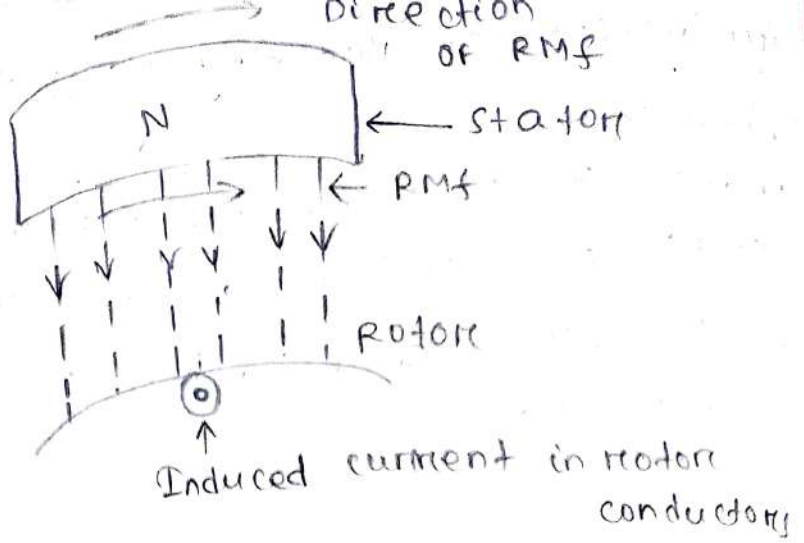 Direction
OF RMf
N
stator
RMf
Rotor
Induced current in rotor
conductors